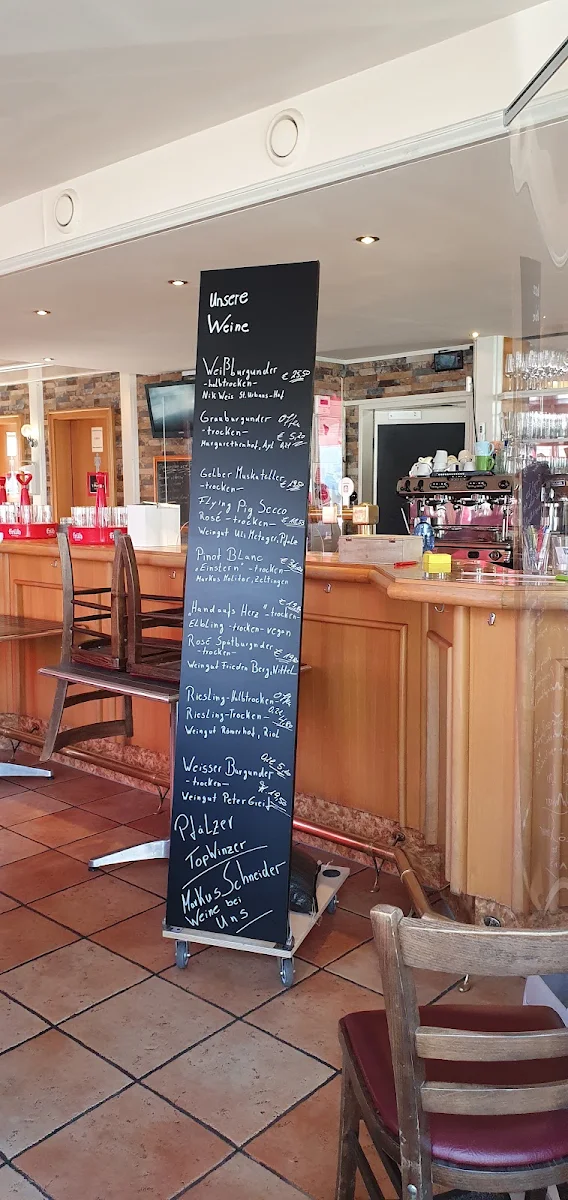 Unsere
Weine
Weißburgunder
-halbtrocken-
Nik Weis St. Urbans-Hof
Grauburgunder
-trocken- € 5,20
Margarethenhof, Ayl 0,2l
Gelber Muskateller
-trocken-
Flying Pig Secco
Rosé -trocken-
Weingut Uli Metzger, Pfalz
Pinot Blanc
"Einstern" -trocken-
Markus Molitor, Zeltingen
"Handaufs Herz" -trocken-
Elbling -trocken- vegan
Rosé Spätburgunder
-trocken-
Weingut Frieden Berg, Nittel
Riesling-Halbtrocken
Riesling-Trocken-
Weingut Römerhof, Riol
Weisser Burgunder
-trocken- 19,50
Weingut Peter Greif
Pfälzer
TopWinzer
Markus Schneider
Weine bei
Uns